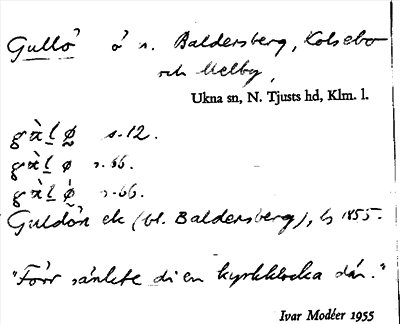 Gullö ö n. Baldersberg, Kolsebo
och Melby,
Ukna sn, N. Tjusts hd, Klm. l.
s. 12.
s. 66.
s. 66.
Guldön ek (bl. Baldersberg), ls 1855.
"Förr sänkte di en kyrkklocka där."
Ivar Modéer 1955